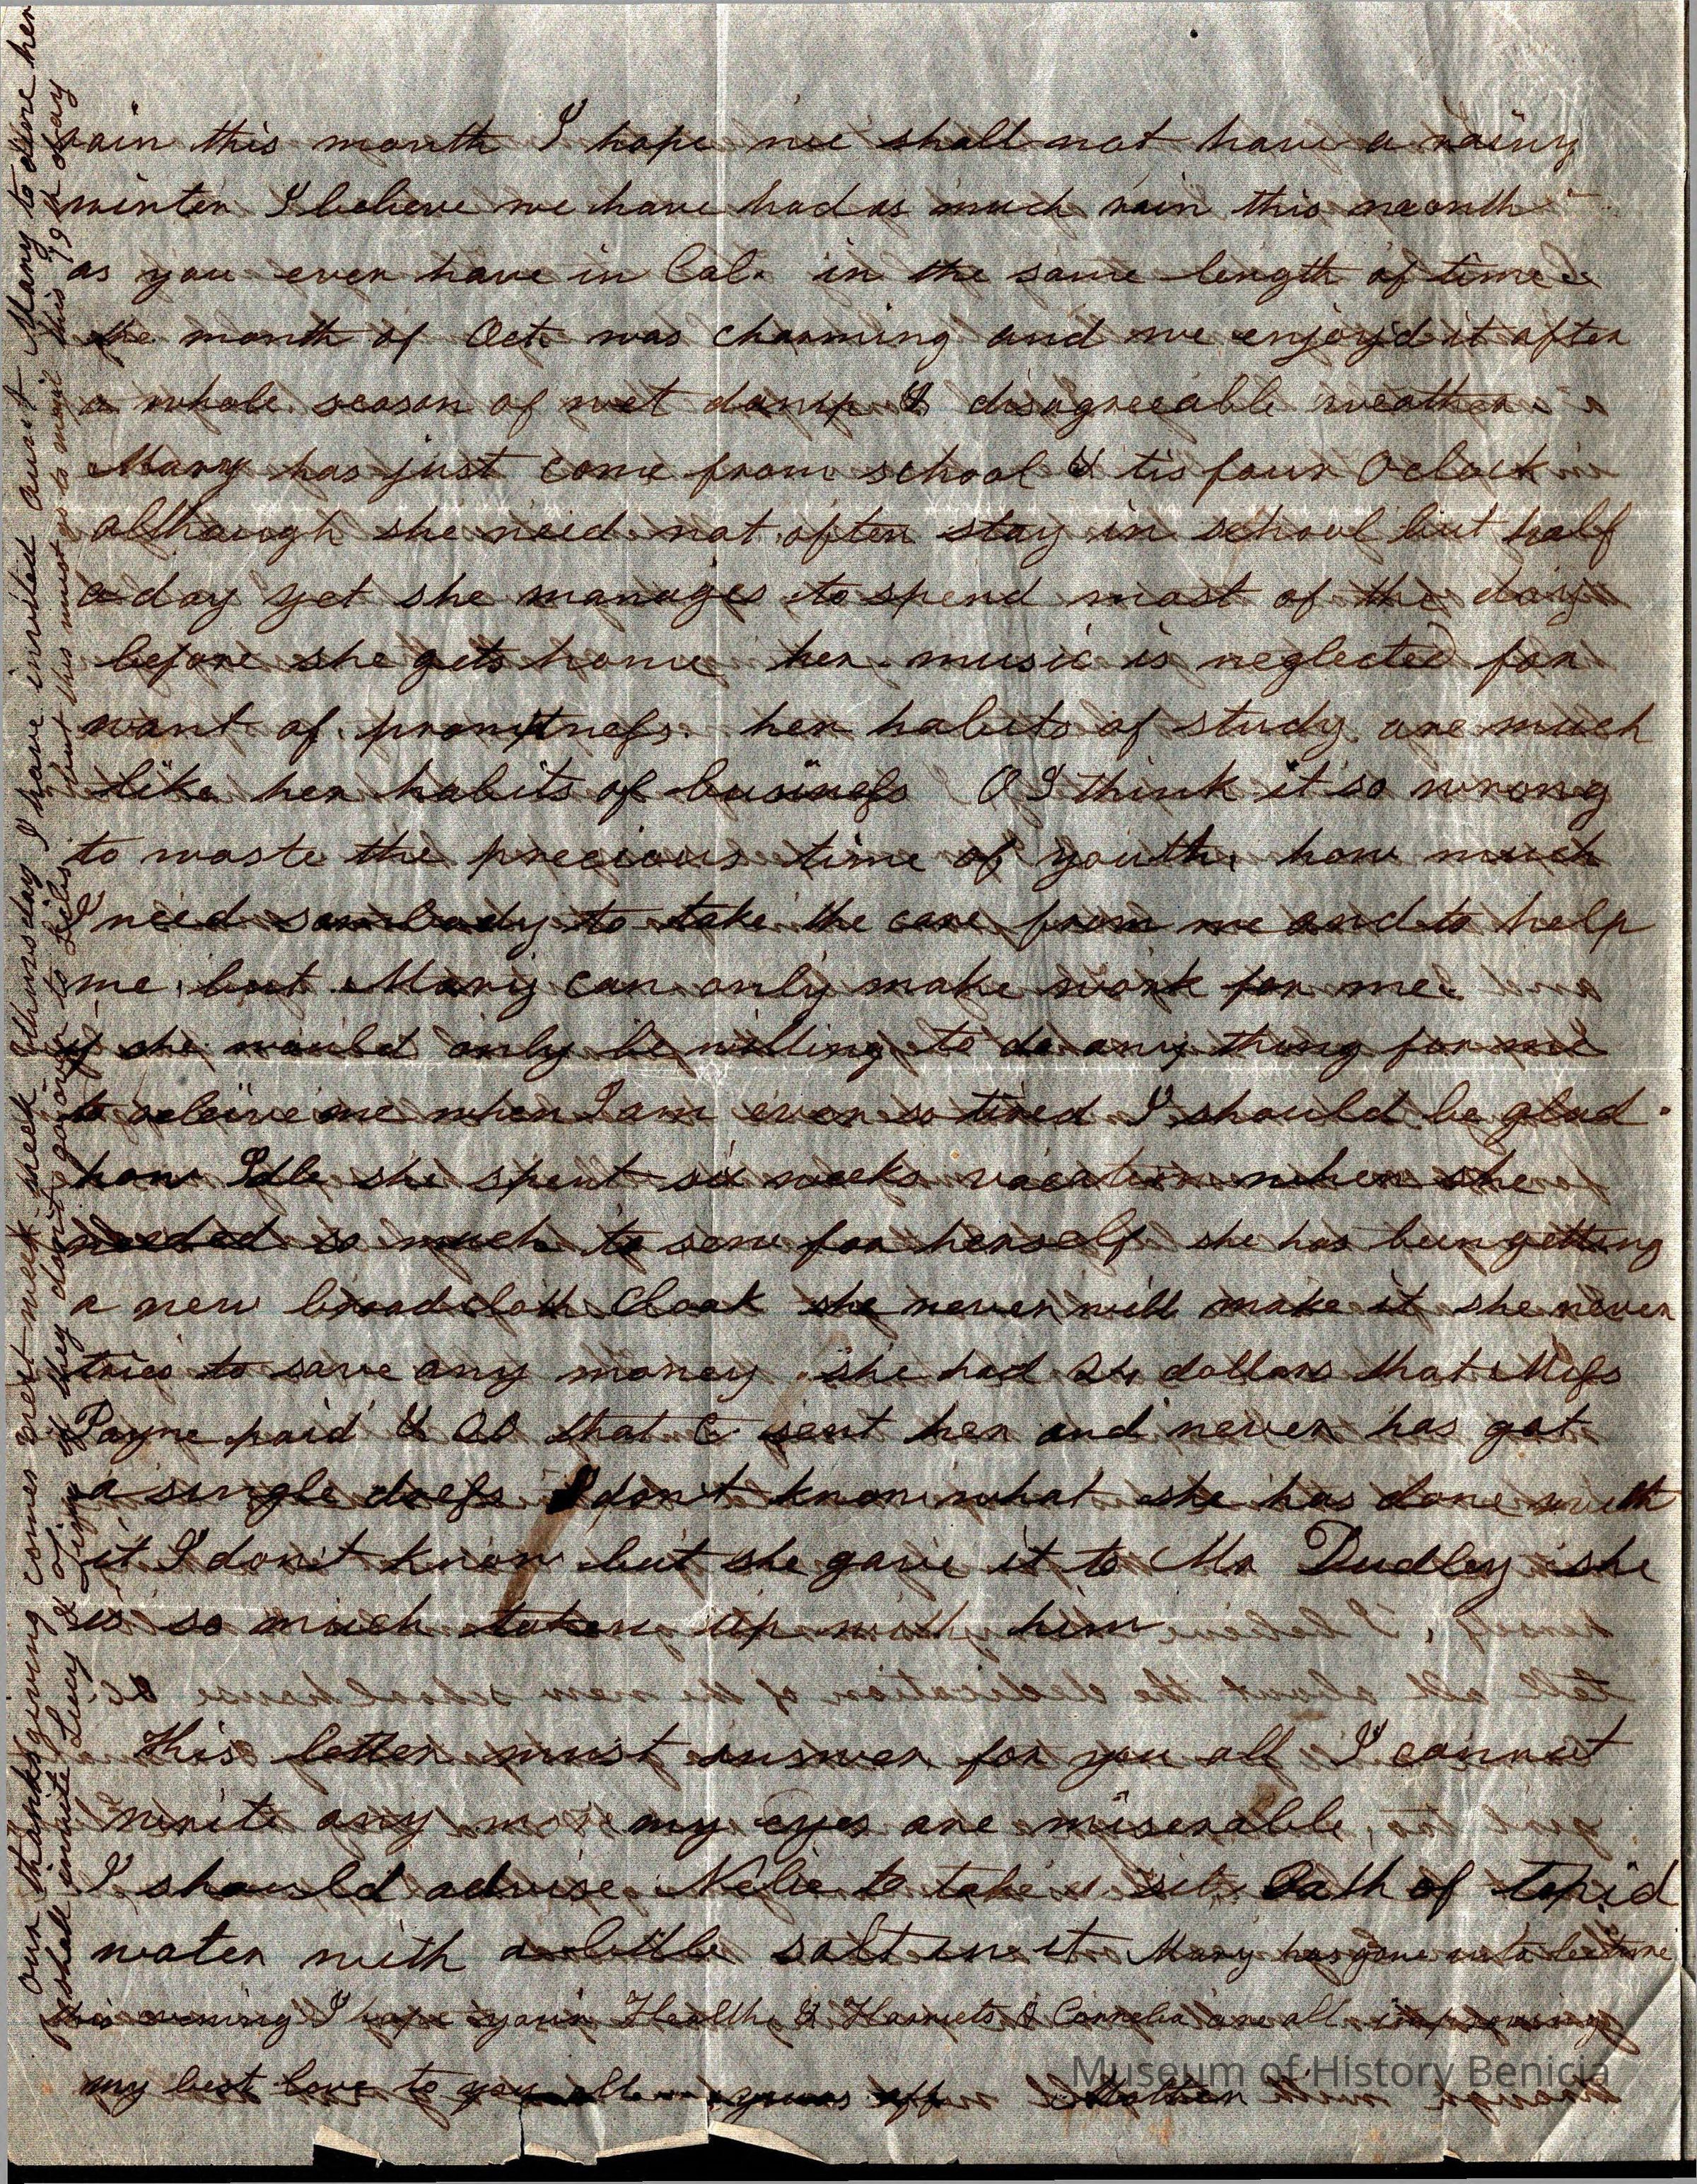 rain this month I hope we shall not have a rainy
winter I believe we have had as much rain this month
as you ever have in Cal. in the same length of time
the month of Oct. was charming and we enjoy'd it after
a whole season of wet damp & disagreeable weather.
Mary has just come from school & tis four Oclock
although she need not often stay in school but half
a day yet she manages to spend most of the day
before she gets home her music is neglected for
want of promtness. her habits of study are much
like her habits of business O I think it so wrong
to waste the precious time of youth, how much
I need sombody to take the care from me and to help
me, but Mary can only make work for me.
if she would only be willing to do any thing for me
to releive me when I am ever so tired I should be glad.
how Idle she spent six weeks vacation when she
needed so much to sew for herself she has been getting
a new broadcloth Cloak she never will make it she never
tries to save any money. she had 24 dollars that Miss
Payne paid & 20 that C. sent her and never has got
a single dress I don't know what she has done with
it I don't know but she gave it to Mr Dudley she
is so much taken up with him
This letter must answer for you all I cannot
write any more my eyes are miserable,
I should advise Nelie to take a sits Bath of tepid
water with a little salt in it Mary has gone to a lecture
this evening I hope your Health, & Harriets & Cornelia are all improving
my best love to you all yours aff Mother
our thanksgiving comes next week week Thursday I have invited aunt Mary to dine here
I shall invite Lucy & Lizzie if they dont go over to Lelis. but this must go to mail this 19th day
Museum of History Benicia